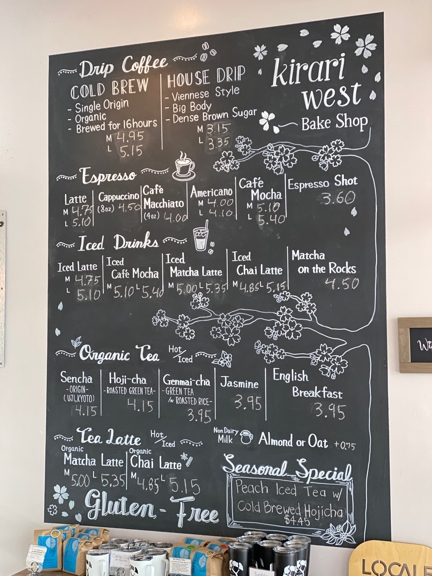 kirari
west
Bake Shop
Drip Coffee
COLD BREW
- Single Origin
- Organic
- Brewed for 16hours
M 4.95
L 5.15
HOUSE DRIP
- Viennese Style
- Big Body
- Dense Brown Sugar
M 3.15
L 3.35
Espresso
Latte
M 4.75
L 5.10
Cappuccino
(8oz) 4.50
Café
Macchiato
(4oz) 4.00
Americano
M 4.00
L 4.10
Café
Mocha
M 5.10
L 5.40
Espresso Shot
3.60
Iced Drinks
Iced Latte
M 4.75
L 5.10
Iced
Café Mocha
M 5.10 L 5.40
Iced
Matcha Latte
M 5.00 L 5.35
Iced
Chai Latte
M 4.85 L 5.15
Matcha
on the Rocks
4.50
Organic Tea
Hot
Iced
Sencha
- ORIGIN -
(UJI, KYOTO)
4.15
Hoji-cha
- ROASTED GREEN TEA -
4.15
Genmai-cha
- GREEN TEA
& ROASTED RICE -
3.95
Jasmine
3.95
English
Breakfast
3.95
Tea Latte
Hot
Iced
Non Dairy
Milk
Almond or Oat +0.75
Organic
Matcha Latte
M 5.00 L 5.35
Organic
Chai Latte
M 4.85 L 5.15
Gluten-Free
Seasonal Special
Peach Iced Tea w/
Cold Brewed Hojicha
$4.45
LOCALE